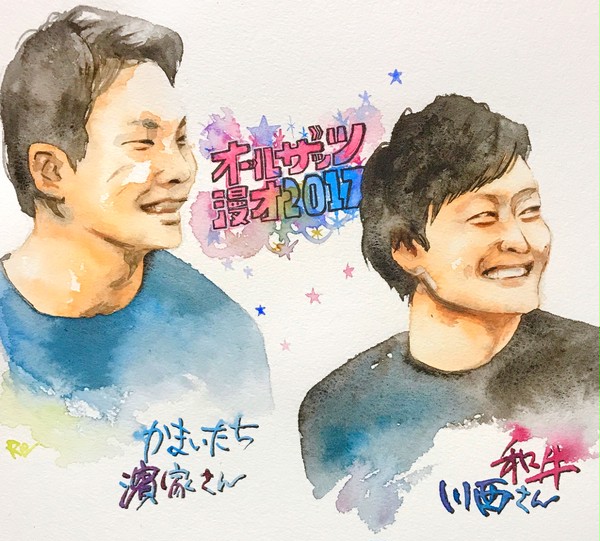 オールザッツ
漫才2017
かまいたち
濱家さん
和牛
川西さん